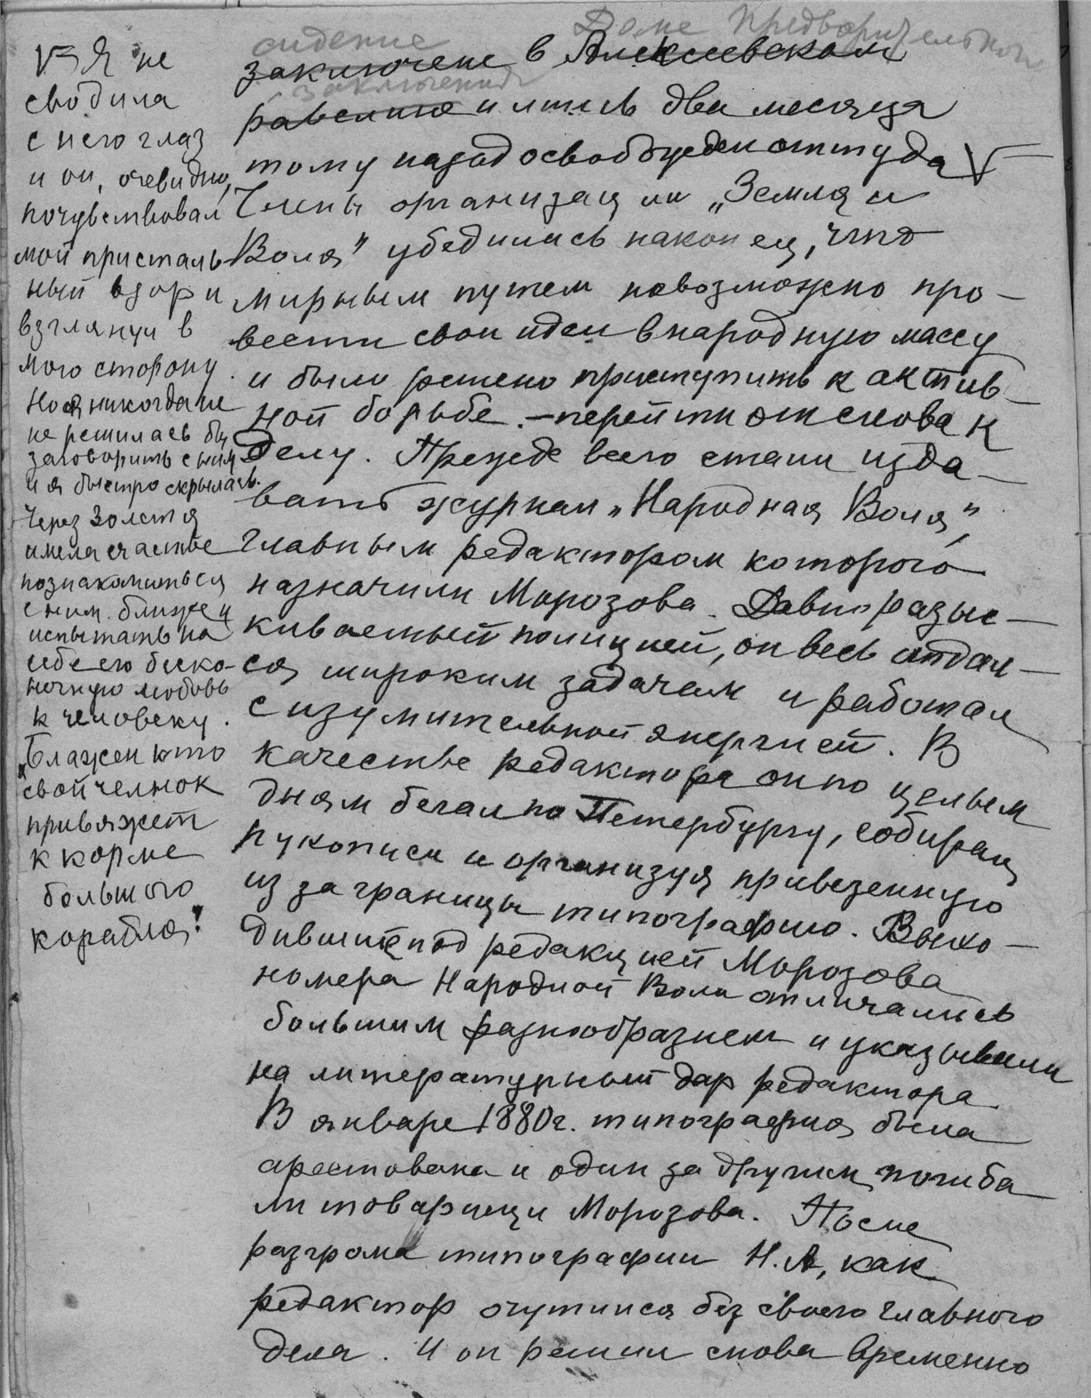 сидение Доме Предварительном
заключене в Алексеевском
заключения
равелине и лишь два месяца
тому назад освобожден оттуда V
Члены организации „Земля и
Воля" убедились наконец, что
мирным путем невозможно про-
вести свои идеи в народную массу
и было решено приступить к актив-
ной борьбе. – перейти от слова к
делу. Прежде всего стали изда-
вать журнал „Народная Воля",
главным редактором которого
назначили Морозова. Давно разыс-
киваемый полицией, он весь отдал-
ся широким задачам и работал
с изумительной энергией. В
качестве редактора он по целым
дням бегал по Петербургу, собирая
рукописи и организуя привезенную
из за границы типографию. Выхо-
дившие под редакцией Морозова
номера Народной Воли отличались
большим разнообразием и указывали
на литературный дар редактора
В январе 1880 г. типография была
арестована и один за другим погиба
ли товарищи Морозова. После
разгрома типографии Н.А, как
редактор очутился без своего главного
дела. И он решил снова временно
V Я не
сводила
с него глаз
и он, очевидно,
почувствовал
мой присталь-
ный взор и
взглянул в
мою сторону.
Но я никогда не
не решилась бы
заговорить с ним
и я быстро скрылась.
Через 30 лет я
имела счастье
познакомиться
с ним ближе и
испытать на
себе его беско-
нечную любовь
к человеку.
Блажен кто
свой челнок
привяжет
к корме
большого
корабля!